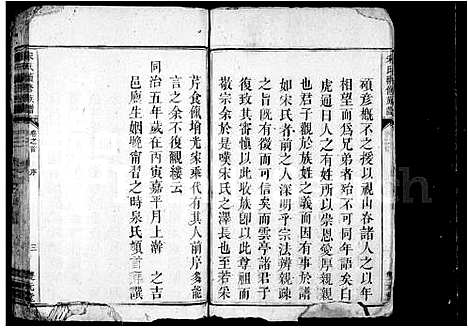 碩彥槪不之授以視山春諸人之以年
相望而爲兄弟者殆不可同年語矣白
虎通曰人之有姓所以崇恩愛厚親親
也君子觀於族姓之義而因有事於譜
如宋氏者前人深明乎宗法辨親疎
之旨旣有以信今而可後雲亭諸君子
復致其審愼以此收族卽以此尊祖而
敬宗余於是嘆宋氏之澤長也至若采
芹食餼增光宋乘代有其人前序多能
言之余不復覼縷云
同治五年歲在丙寅嘉平月上澣之吉
邑廪生姻晚甯習之時泉氏頓首拜譔
卷之首
序
三